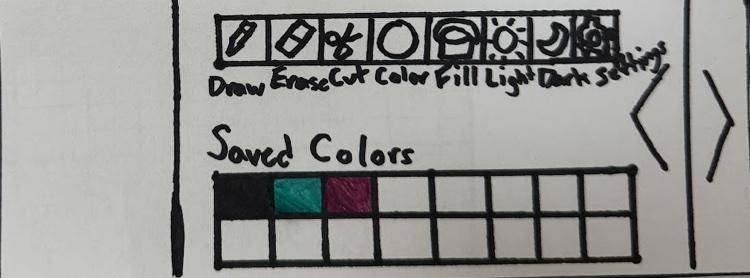 Draw Erase Cut Color Fill Light Dark Settings
Saved Colors